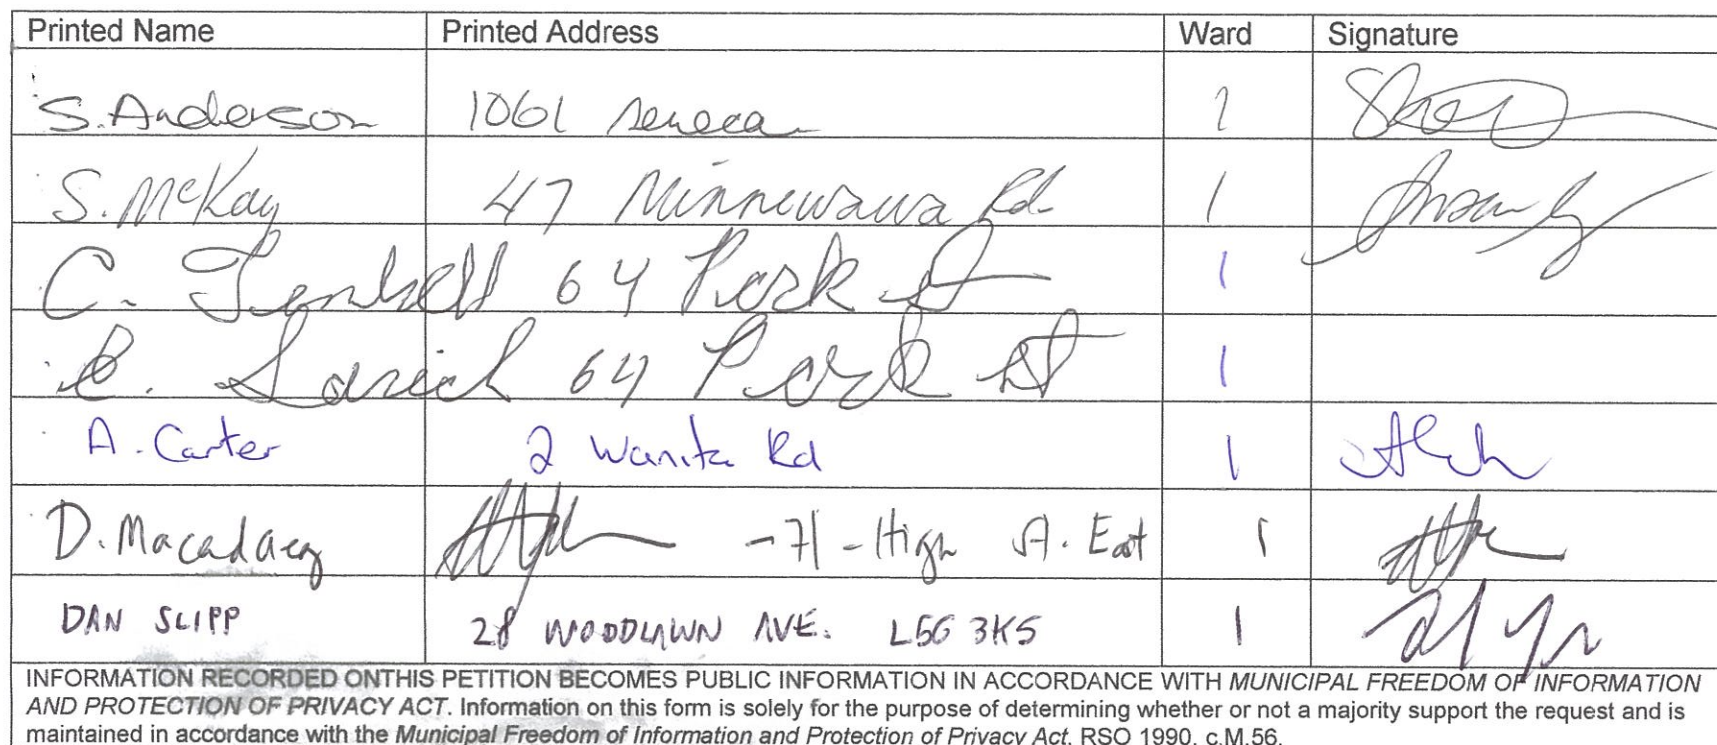 Printed Name Printed Address Ward Signature
S. Anderson 1061 seneca 1
S. McKay 47 Minnewawa Rd. 1
C. 64 Park St 1
64 Park St 1
A. Carter 2 Wanita Rd 1
D. - 71 - High St. East 1
DAN SLIPP 28 WOODLAWN AVE. L5G 3K5 1
INFORMATION RECORDED ONTHIS PETITION BECOMES PUBLIC INFORMATION IN ACCORDANCE WITH MUNICIPAL FREEDOM OF INFORMATION
AND PROTECTION OF PRIVACY ACT. Information on this form is solely for the purpose of determining whether or not a majority support the request and is
maintained in accordance with the Municipal Freedom of Information and Protection of Privacy Act, RSO 1990, c.M.56.